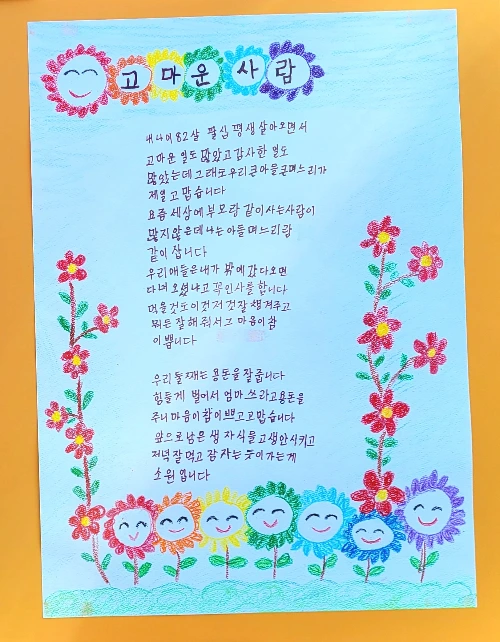 고마운 사람
내 나이 82살 팔십 평생 살아오면서
고마운 일도 많았고 감사한 일도
많았는데 그래도 우리 큰아들 큰며느리가
제일 고맙습니다
요즘 세상에 부모랑 같이 사는 사람이
많지 않은데 나는 아들 며느리랑
같이 삽니다
우리 애들은 내가 밖에 갔다오면
다녀오셨냐고 꼭 인사를 합니다
먹을것도 이것저것 잘 챙겨주고
뭐든 잘해줘서 그 마음이 참
이쁩니다
우리 둘째는 용돈을 잘 줍니다
힘들게 벌어서 엄마 쓰라고 용돈을
주니 마음이 참 이쁘고 고맙습니다
앞으로 남은 생 자식들 고생 안시키고
저녁 잘 먹고 잠 자는 듯이 가는게
소원 입니다